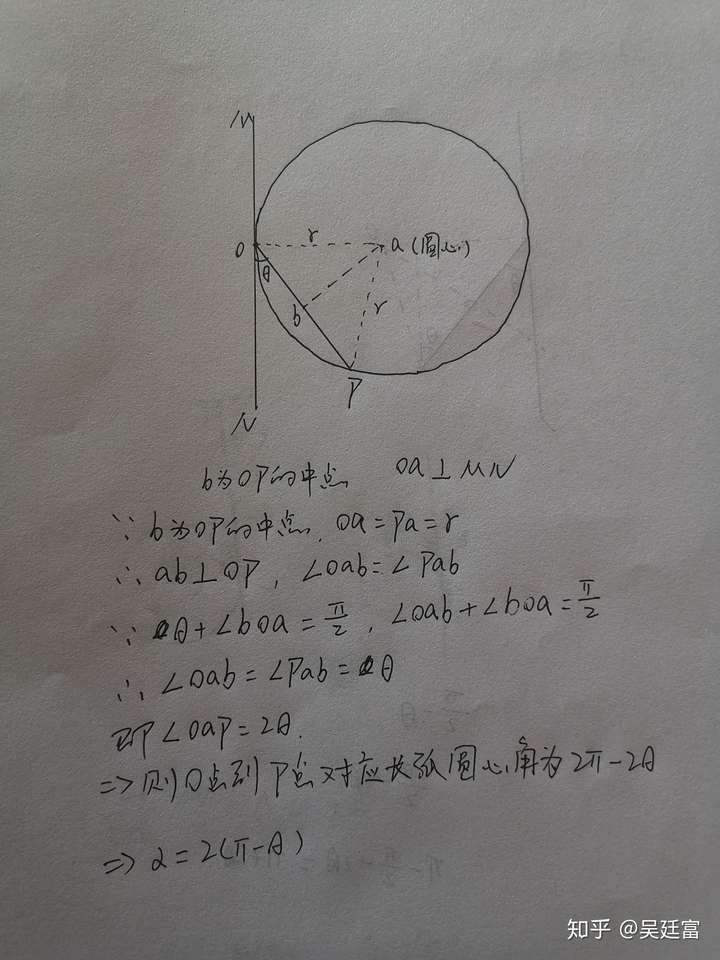 M
O
r
a (圆心)
θ
b
r
P
N
b为OP的中点 oa⊥MN
∵ b为OP的中点, oa=Pa=r
∴ ab⊥OP, ∠oab=∠Pab
∵ θ+∠boa=π/2, ∠oab+∠boa=π/2
∴ ∠oab=∠Pab=θ
即∠oaP=2θ.
=> 则O点到P点对应长弧圆心角为2π-2θ
=> α=2(π-θ)
知乎 @吴廷富